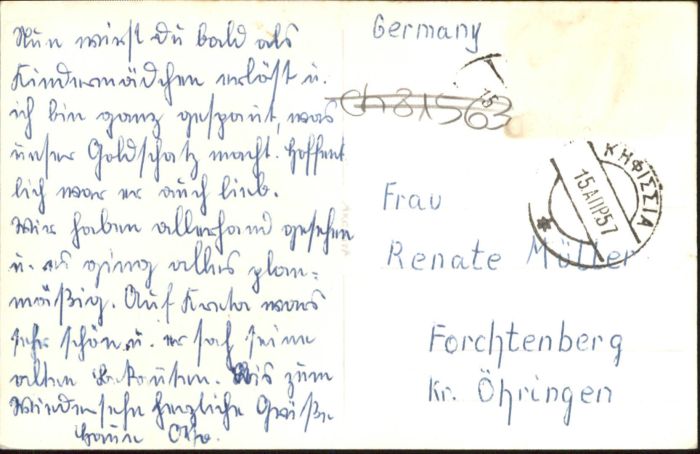 Nun wirst du bald als
Kindermädchen erlöst u.
ich bin ganz gespannt, was
unser Goldschatz macht. Hoffent
lich war er auch lieb.
Wir haben allerhand gesehen
u. es ging alles plan-
mäßig. Auf Kreta wars
sehr schön u. er sah seine
alten Bekannten. Bis zum
Wiedersehn herzliche Grüße
Otto.
Germany
ch 81563
15
ΚΗΦΙΣΣΙΑ
15 ΑΠΡ 57
Frau
Renate Müller
Forchtenberg
Kr. Öhringen